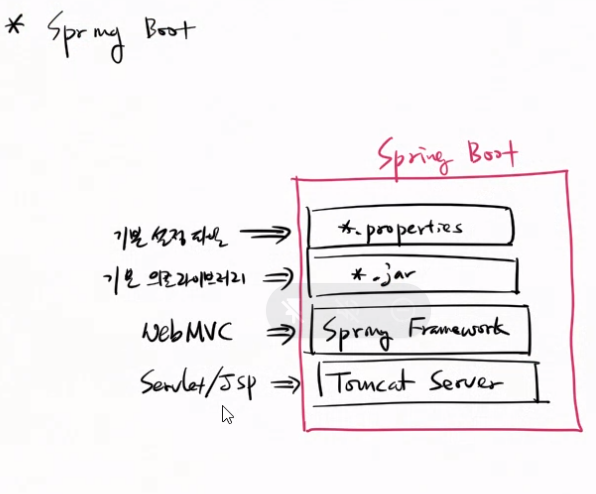 * Spring Boot
Spring Boot
기본 설정 파일 ⇒ *.properties
기본 의존라이브러리 ⇒ *.jar
WebMVC ⇒ Spring Framework
Servlet/Jsp ⇒ Tomcat Server